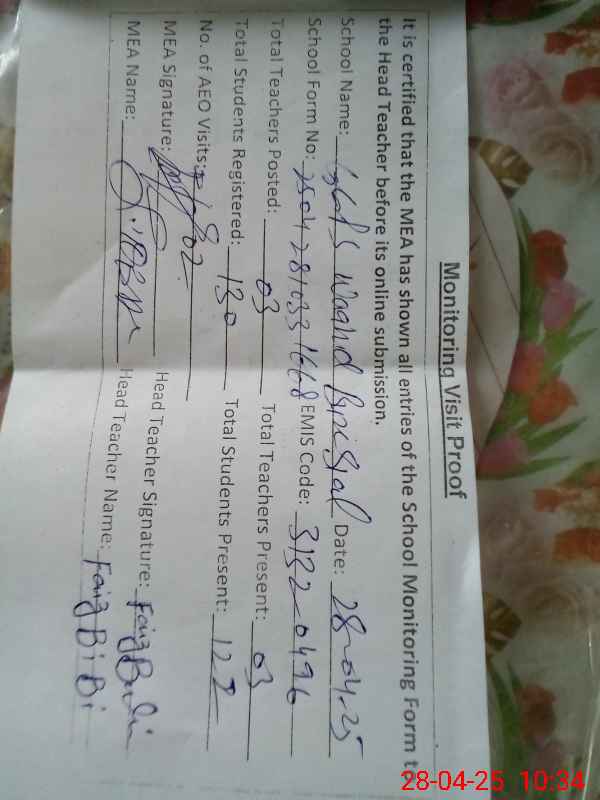 Monitoring Visit Proof
It is certified that the MEA has shown all entries of the School Monitoring Form to
the Head Teacher before its online submission.
School Name: Date: 28-04-25
School Form No: EMIS Code: 31320496
Total Teachers Posted: 03 Total Teachers Present: 03
Total Students Registered: 130 Total Students Present: 122
No. of AEO Visits: 02
MEA Signature: Head Teacher Signature: Faiz
MEA Name: Head Teacher Name: Faiz Bi Bi
28-04-25 10:34